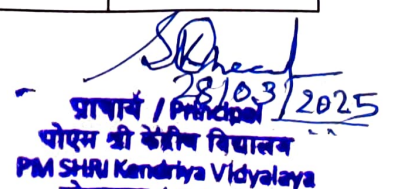 28/03/2025
प्राचार्य / Principal
पीएम श्री केंद्रीय विद्यालय
PM SHRI Kendriya Vidyalaya